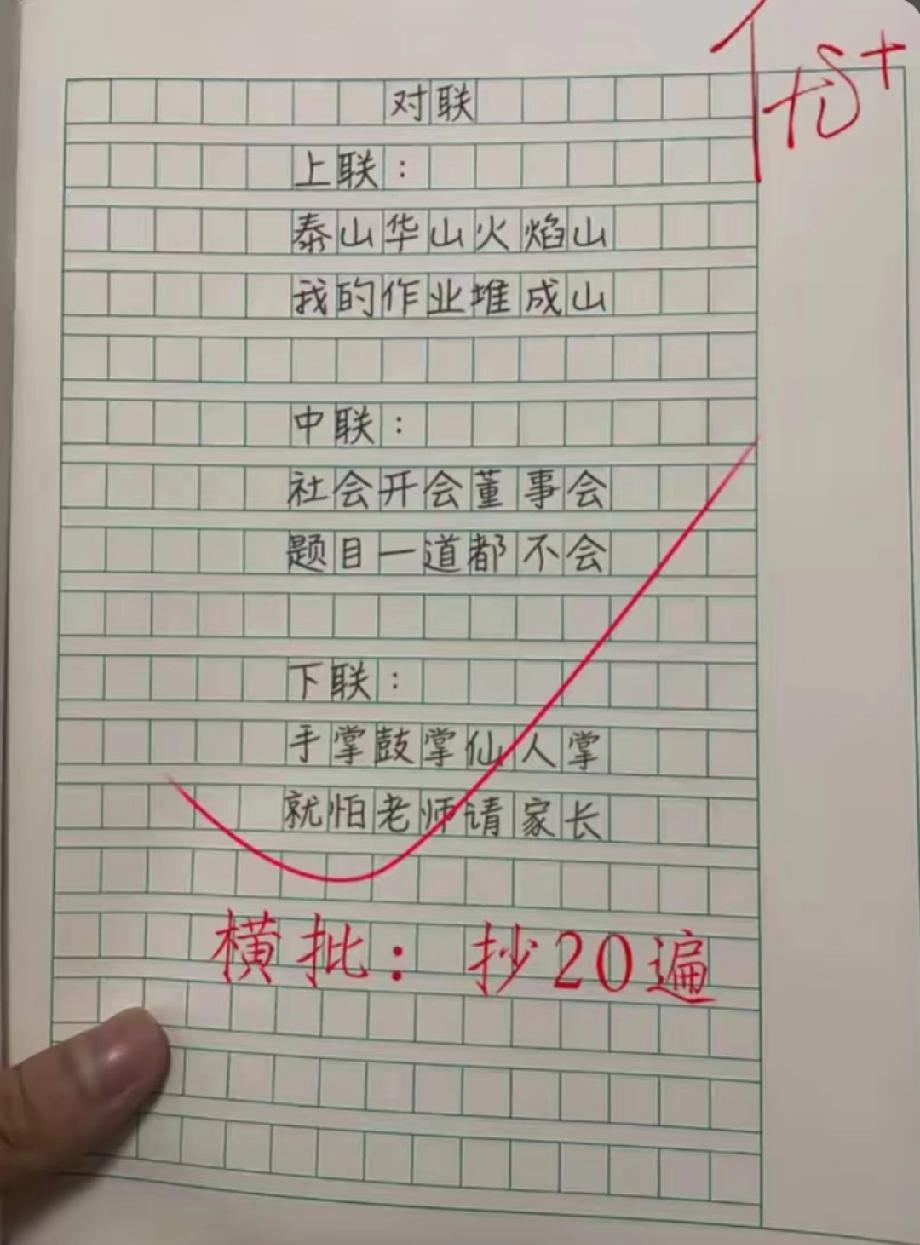 优+
对联
上联：
泰山华山火焰山
我的作业堆成山
中联：
社会开会董事会
题目一道都不会
下联：
手掌鼓掌仙人掌
就怕老师请家长
横批：抄20遍